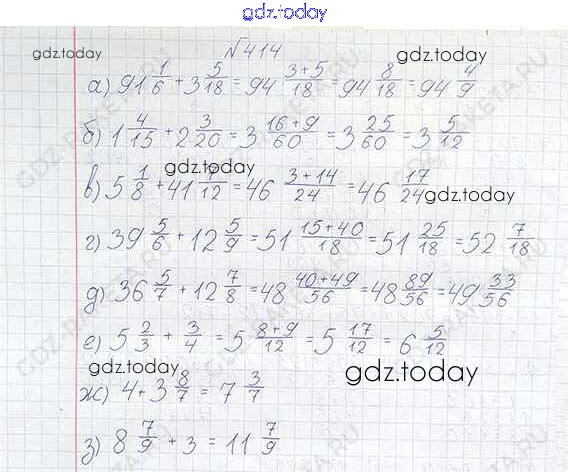 gdz.today
№414
gdz.today gdz.today
а) 91 1/6 + 3 5/18 = 94 3+5/18 = 94 8/18 = 94 4/9
б) 1 4/15 + 2 3/20 = 3 16+9/60 = 3 25/60 = 3 5/12
gdz.today
в) 5 1/8 + 41 7/12 = 46 3+14/24 = 46 17/24
gdz.today
г) 39 5/6 + 12 5/9 = 51 15+40/18 = 51 25/18 = 52 7/18
д) 36 5/7 + 12 7/8 = 48 40+49/56 = 48 89/56 = 49 33/56
е) 5 2/3 + 3/4 = 5 8+9/12 = 5 17/12 = 6 5/12
gdz.today gdz.today
ж) 4 + 3 8/7 = 7 3/7
з) 8 7/9 + 3 = 11 7/9